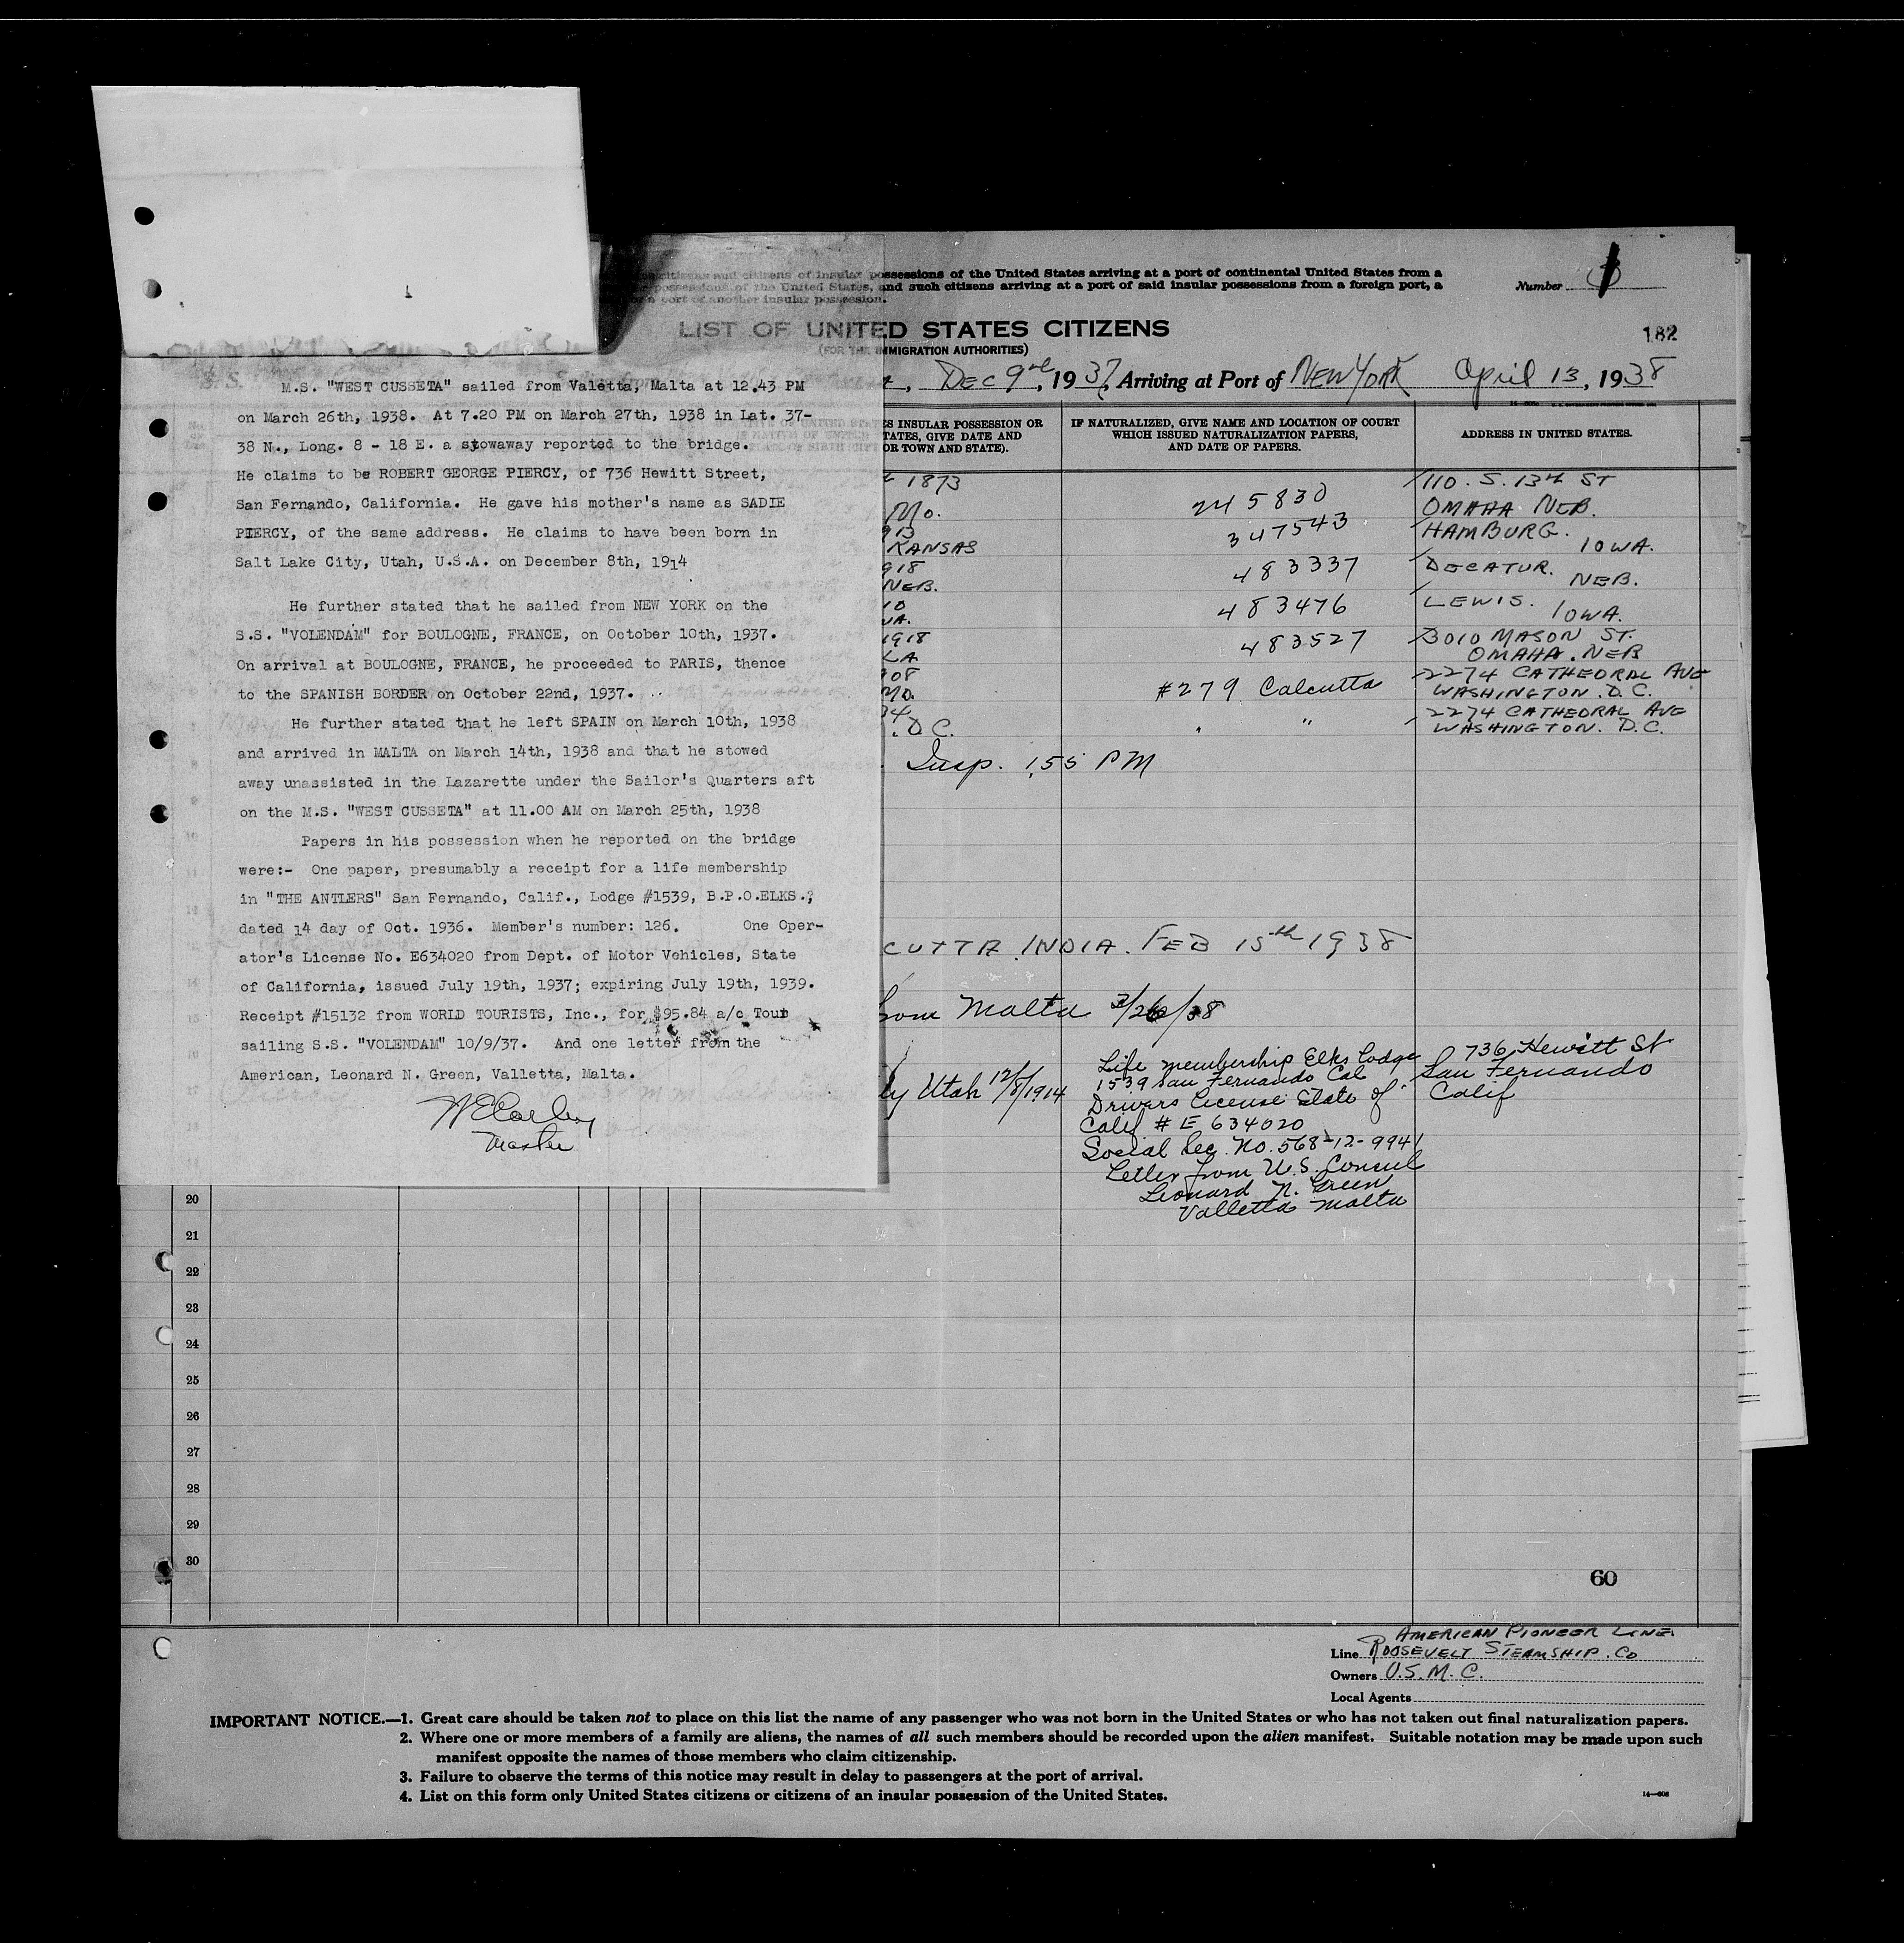 possessions of the United States arriving at a port of continental United States from a
possessions of the United States, and such citizens arriving at a port of said insular possessions from a foreign port, a
port of another insular possession.
Number
LIST OF UNITED STATES CITIZENS
182
(FOR THE IMMIGRATION AUTHORITIES)
Dec 9th, 1937, Arriving at Port of NEW YORK April 13, 1938
M.S. "WEST CUSSETA" sailed from Valetta, Malta at 12.43 PM
on March 26th, 1938. At 7.20 PM on March 27th, 1938 in Lat. 37-
38 N., Long. 8 - 18 E. a stowaway reported to the bridge.
He claims to be ROBERT GEORGE PIERCY, of 736 Hewitt Street,
San Fernando, California. He gave his mother's name as SADIE
PIERCY, of the same address. He claims to have been born in
Salt Lake City, Utah, U.S.A. on December 8th, 1914
He further stated that he sailed from NEW YORK on the
S.S. "VOLENDAM" for BOULOGNE, FRANCE, on October 10th, 1937.
On arrival at BOULOGNE, FRANCE, he proceeded to PARIS, thence
to the SPANISH BORDER on October 22nd, 1937.
He further stated that he left SPAIN on March 10th, 1938
and arrived in MALTA on March 14th, 1938 and that he stowed
away unassisted in the Lazarette under the Sailor's Quarters aft
on the M.S. "WEST CUSSETA" at 11.00 AM on March 25th, 1938
Papers in his possession when he reported on the bridge
were:- One paper, presumably a receipt for a life membership
in "THE ANTLERS" San Fernando, Calif., Lodge #1539, B.P.O.ELKS.;
dated 14 day of Oct. 1936. Member's number: 126. One Oper-
ator's License No. E634020 from Dept. of Motor Vehicles, State
of California, issued July 19th, 1937; expiring July 19th, 1939.
Receipt #15132 from WORLD TOURISTS, Inc., for $95.84 a/c Tour
sailing S.S. "VOLENDAM" 10/9/37. And one letter from the
American, Leonard N. Green, Valletta, Malta.
Master
INSULAR POSSESSION OR
TATES, GIVE DATE AND
OR TOWN AND STATE).
IF NATURALIZED, GIVE NAME AND LOCATION OF COURT
WHICH ISSUED NATURALIZATION PAPERS,
AND DATE OF PAPERS.
ADDRESS IN UNITED STATES.
1873
Mo.
245830
110. S. 13th ST
OMAHA NEB.
913
KANSAS
347543
HAMBURG.
IOWA.
918
NEB.
483337
DECATUR.
NEB.
10
WA.
483476
LEWIS.
IOWA.
1918
LA
483527
3010 MASON ST.
OMAHA. NEB
908
MO.
#279 Calcutta
2274 CATHEDRAL AVE
WASHINGTON. D.C.
34
. D.C.
" "
2274 CATHEDRAL AVE
WASHINGTON. D.C.
Insp. 1,55 PM
CUTTA. INDIA. FEB 15th 1938
from Malta 3/26/38
ly Utah 12/8/1914
Life membership Elks Lodge
1539 San Fernando Cal
Drivers License State of
Calif # E 634020
Social Sec. No. 568-12-9941
Letter from U.S. Consul
Leonard N. Green
Valletta Malta
736 Hewitt St
San Fernando
Calif
20
21
22
23
24
25
26
27
28
29
30
60
AMERICAN PIONEER LINE
Line ROOSEVELT STEAMSHIP. Co
Owners U.S.M.C.
Local Agents
IMPORTANT NOTICE.—1. Great care should be taken not to place on this list the name of any passenger who was not born in the United States or who has not taken out final naturalization papers.
2. Where one or more members of a family are aliens, the names of all such members should be recorded upon the alien manifest. Suitable notation may be made upon such
manifest opposite the names of those members who claim citizenship.
3. Failure to observe the terms of this notice may result in delay to passengers at the port of arrival.
4. List on this form only United States citizens or citizens of an insular possession of the United States.
14—608